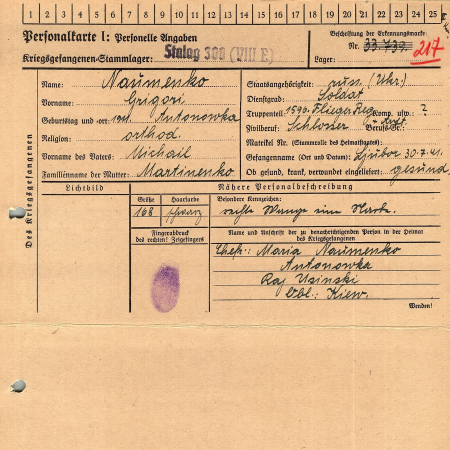 1 2 3 4 5 6 7 8 9 10 11 12 13 14 15 16 17 18 19 20 21 22 23 24 25
Personalkarte I: Personelle Angaben
Beschriftung der Erkennungsmarke
Nr. 33 739 217
Kriegsgefangenen-Stammlager: Stalag 308 (VIII E)
Lager:
Des Kriegsgefangenen
Name: Naumenko
Vorname: Grigori
Geburtstag und -ort: Antonowka
Religion: orthod
Vorname des Vaters: Michail
Familienname der Mutter: Martinenko
Staatsangehörigkeit: russ. (Ukr.)
Dienstgrad: Soldat
Truppenteil: Flieg. Reg. Komp. usw.: ?
Zivilberuf: Schlosser Berufs-Gr.:
Matrikel Nr. (Stammrolle des Heimatstaates):
Gefangenname (Ort und Datum): Ljubor 30.7.41.
Ob gesund, krank, verwundet eingeliefert: gesund
Lichtbild
Nähere Personalbeschreibung
Größe
Haarfarbe
Besondere Kennzeichen:
168
schwarz
rechte Wange eine Narbe.
Fingerabdruck
des rechten! Zeigefingers
Name und Anschrift der zu benachrichtigenden Person in der Heimat
des Kriegsgefangenen
Maria Naumenko
Antonowka
Raj Usinski
Obl.: Kiew.
Wenden!